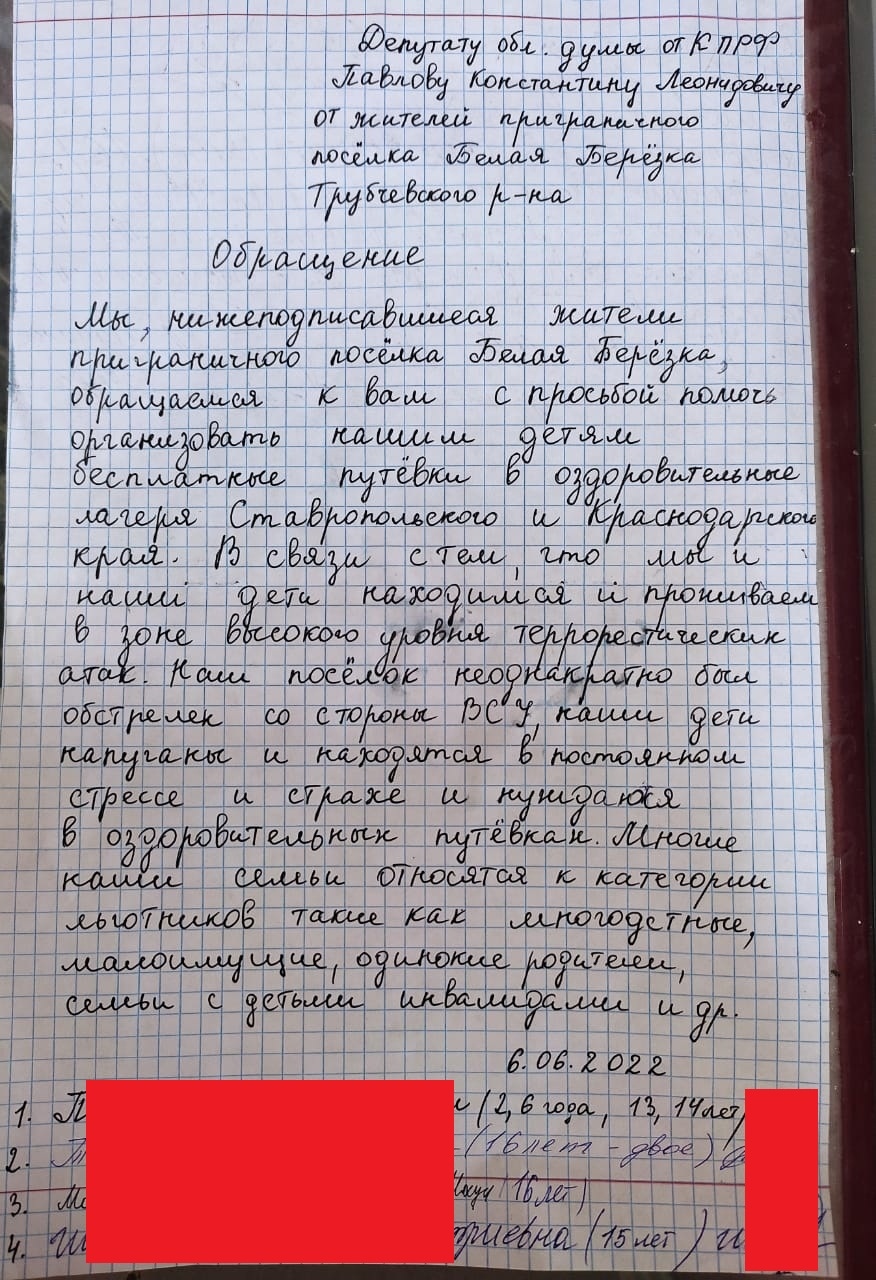 Депутату обл. думы от КПРФ
Павлову Константину Леонидовичу
от жителей приграничного
посёлка Белая Берёзка
Трубчевского р-на
Обращение
Мы, нижеподписавшиеся жители
приграничного посёлка Белая Берёзка,
обращаемся к вам с просьбой помочь
организовать нашим детям
бесплатные путёвки в оздоровительные
лагеря Ставропольского и Краснодарского
края. В связи с тем, что мы и
наши дети находимся и проживаем
в зоне высокого уровня террорестических
атак. Наш посёлок неоднакратно был
обстрелен со стороны ВСУ, наши дети
напуганы и находятся в постоянном
стрессе и страхе и нуждаюся
в оздоровительных путёвках. Многие
наши семьи относятся к категории
льготников такие как многодетные,
малоимущие, одинокие родители,
семьи с детьми инвалидами и др.
6.06.2022
1. П (2, 6 года, 13, 14 лет)
2. (16 лет - двое)
3. (16 лет)
4. (15 лет)